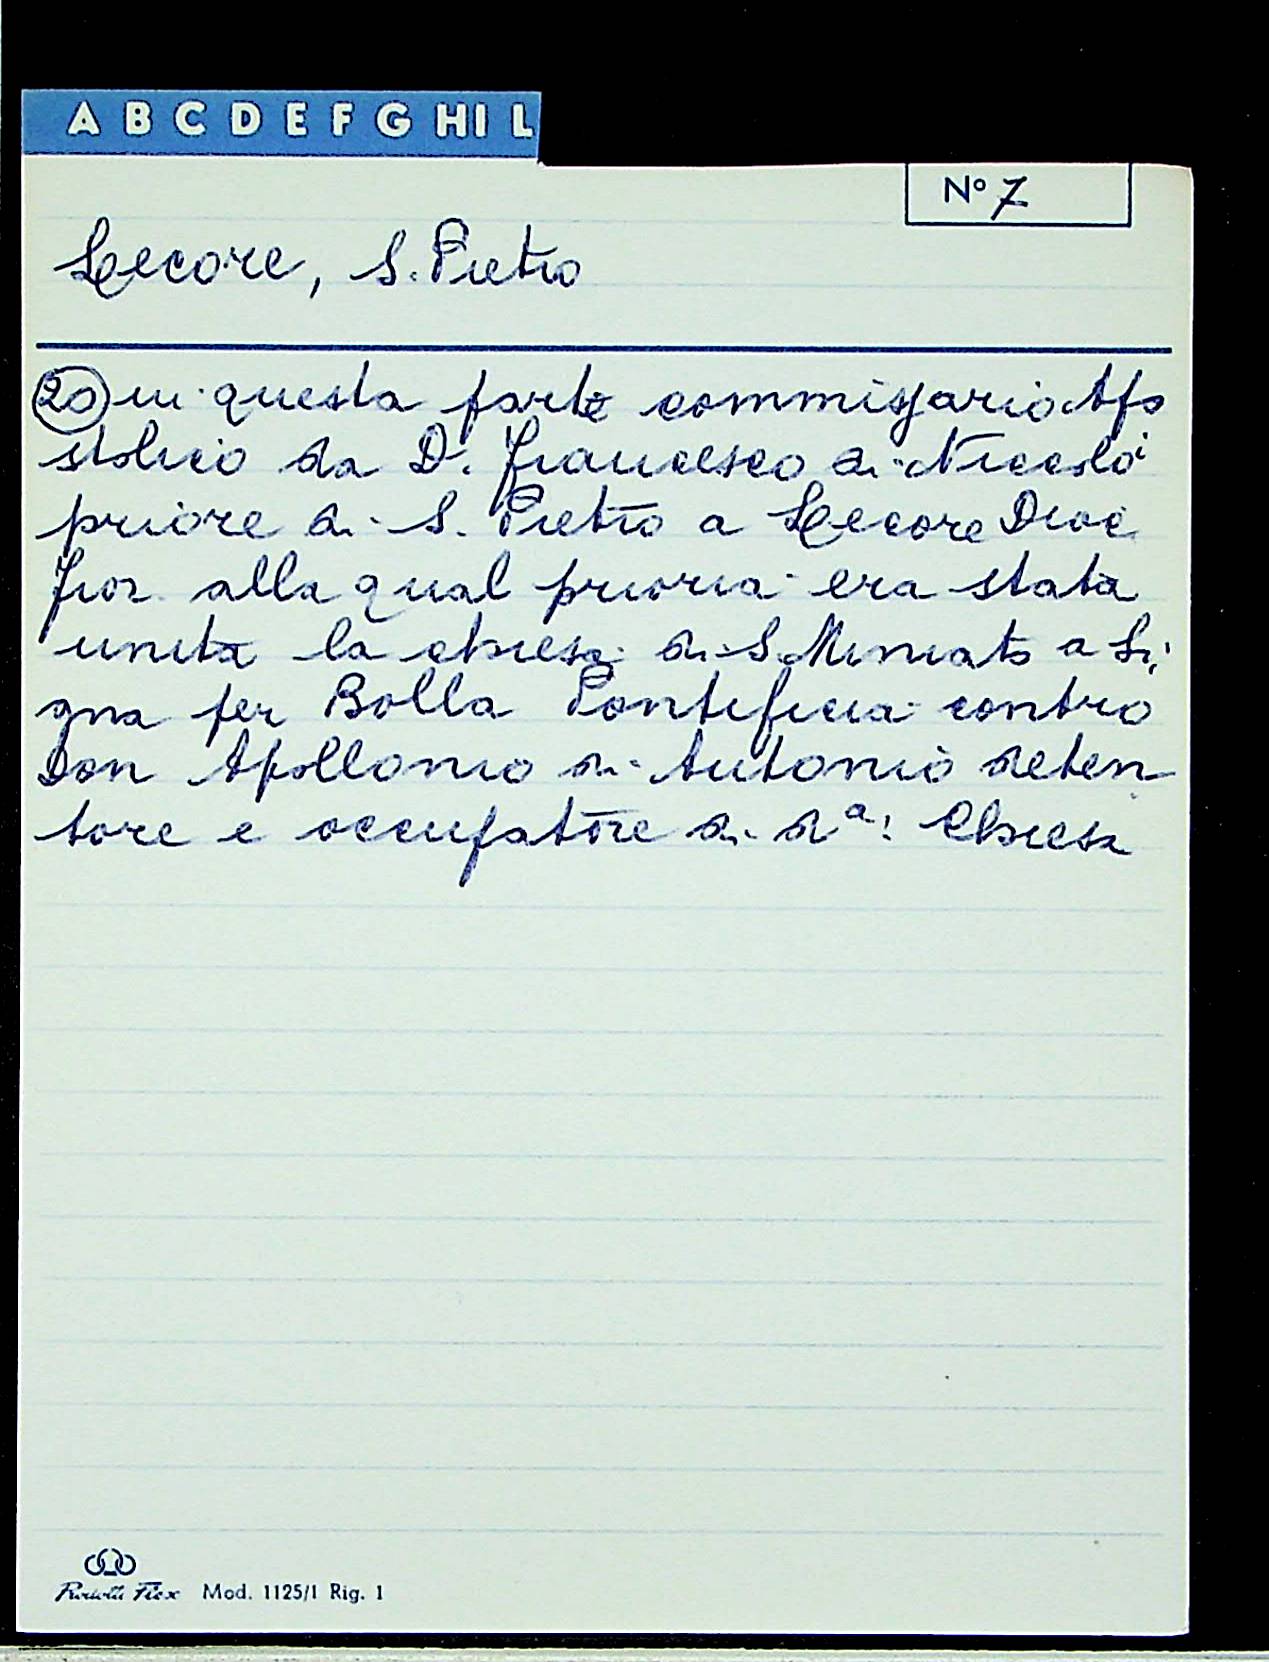 A B C D E F G H I L
N° 7
Lecore, S. Pietro
20 in questa parte commissario Apo
stolico da D. Francesco di Niccolò
priore di S. Pietro a Lecore Dioc
Fior. alla qual prioria era stata
unita la chiesa di S. Miniato a Si,
gna per Bolla Pontificia contro
Don Apollonio di Antonio deten
tore e occupatore di dª: Chiesa
Mod. 1125/1 Rig. 1